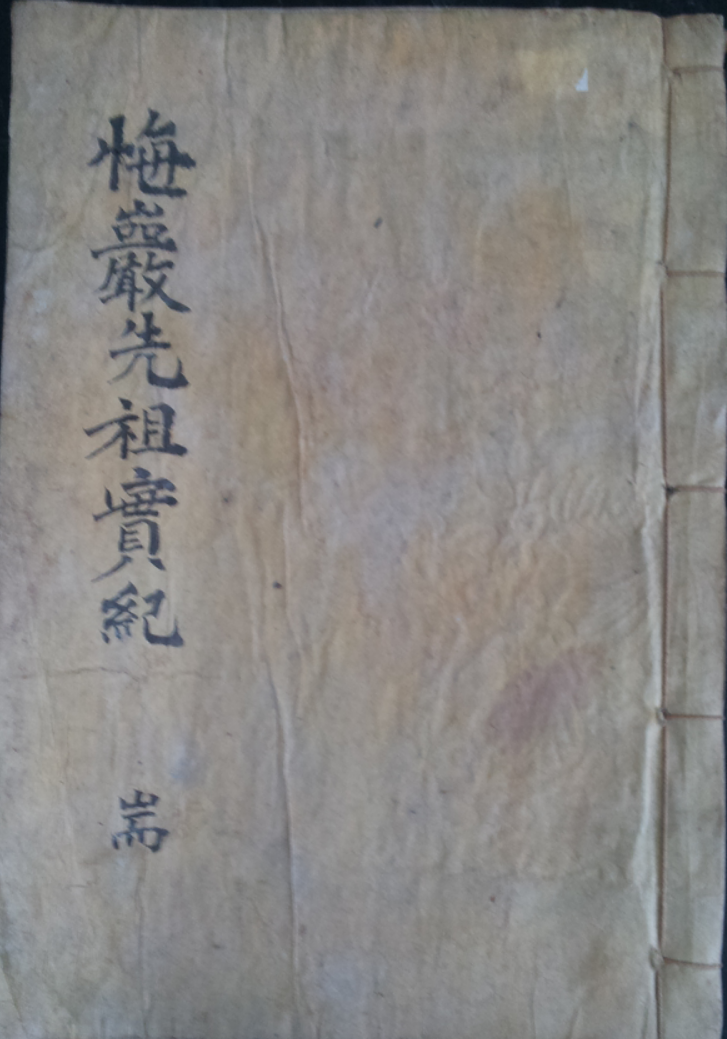 悔巖先祖實紀
耑